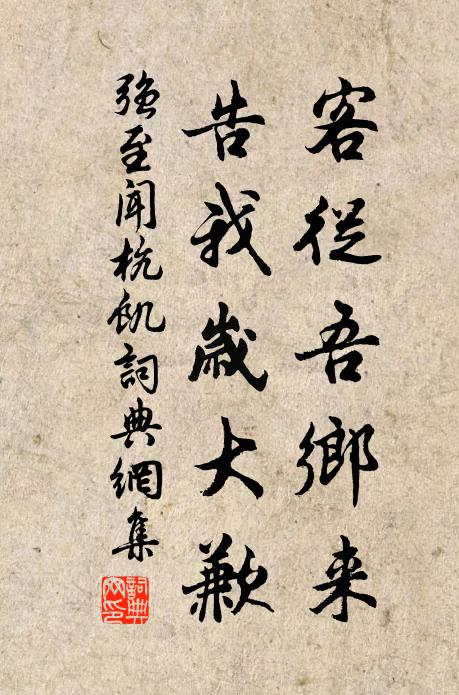 客從吾鄉来
告我歲大歉
強至聞杭飢詞典網集
詞典
网印